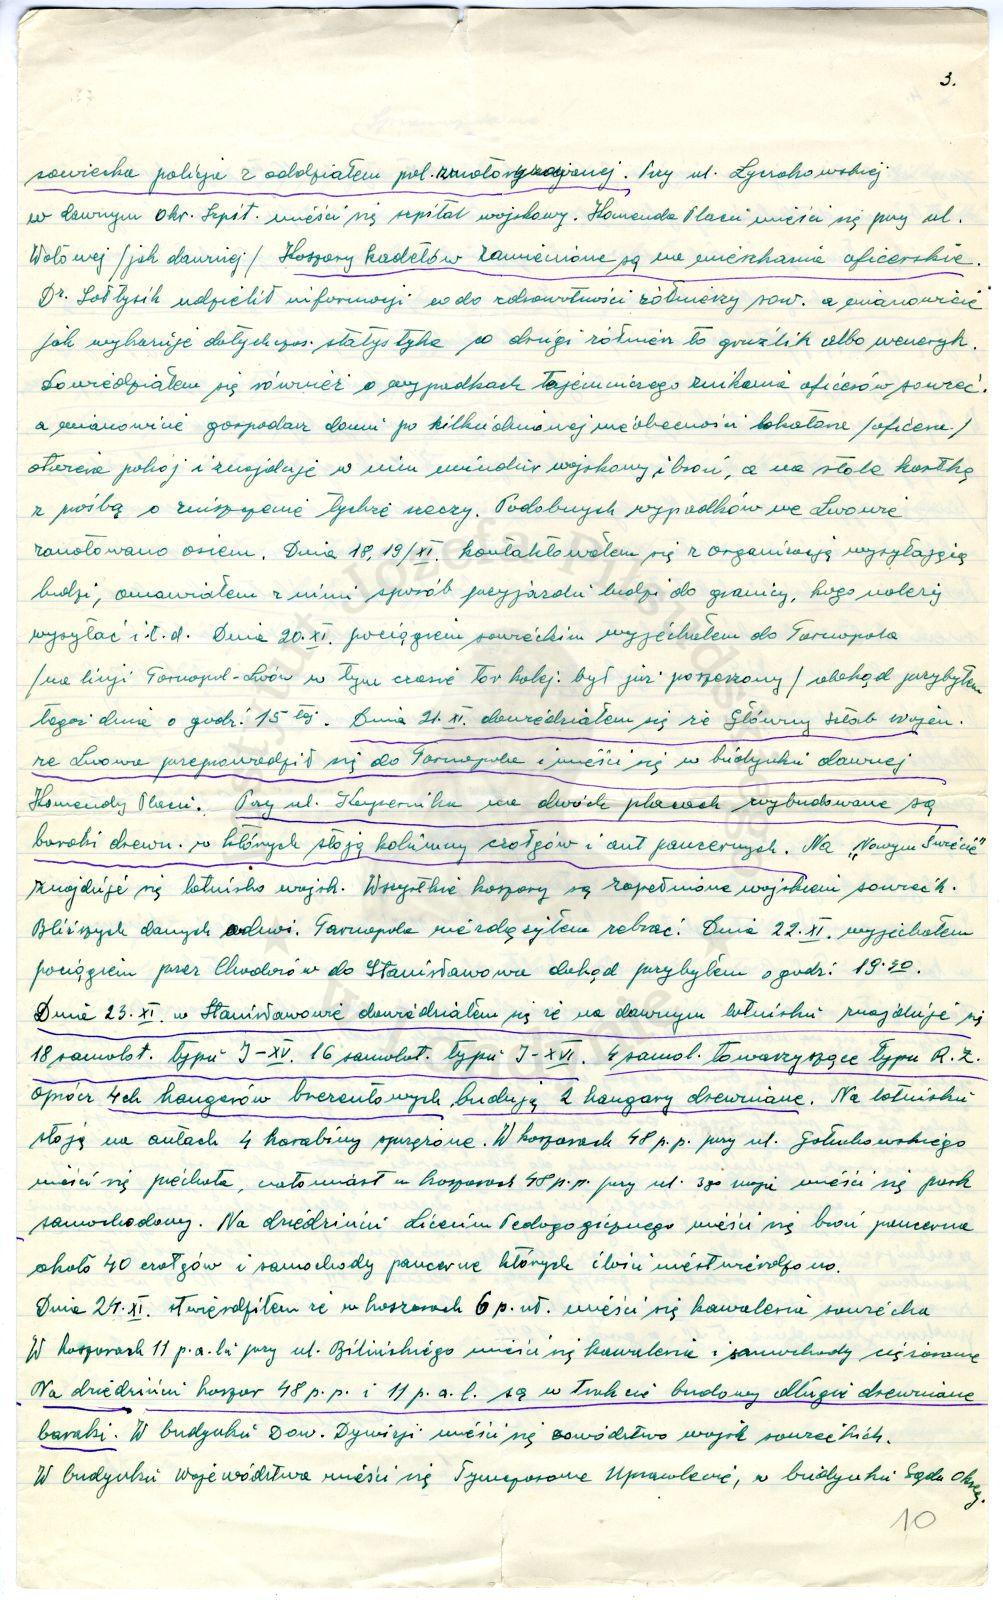 3.
sowiecka policja z oddziałem pol. zmotoryzowanej. Przy ul. Łyczakowskiej
w dawnym Okr. Szpit. mieści się szpital wojskowy. Komenda Placu mieści się przy ul.
Wałowej /jak dawniej/ Koszary kadetów zamienione są na mieszkania oficerskie.
Dr. Sołtysik udzielił informacji co do zdrowotności żołnierzy sow. a mianowicie
jak wykazuje dotychczas. statystyka co drugi żołnierz to gruźlik albo weneryk.
Dowiedziałem się również o wypadkach tajemniczego znikania oficerów sowiec.
a mianowicie gospodarz domu po kilkudniowej nieobecności lokatora /oficera/
otwiera pokój i znajduje w nim mundur wojskowy i broń, a na stole kartkę
z prośbą o zniszczenie tychże rzeczy. Podobnych wypadków we Lwowie
zanotowano osiem. Dnia 18, 19/XI. kontaktowałem się z organizacją wysyłającą
ludzi, omawiałem z nimi sposób przyjazdu ludzi do granicy, kogo należy
wysyłać i t. d. Dnia 20.XI. pociągiem sowieckim wyjechałem do Tarnopola
/na linji Tarnopol-Lwów w tym czasie tor kolej. był już poszerzony/ dokąd przybyłem
tegoż dnia o godz. 15 tej. Dnia 21.XI. dowiedziałem się że Główny Sztab Wojen.
ze Lwowa przeprowadził się do Tarnopola i mieści się w budynku dawnej
Komendy Placu. Przy ul. Kopernika na dwóch placach wybudowane są
baraki drewn. w których stoją kolumny czołgów i aut pancernych. Na "Nowym Świecie"
znajduje się lotnisko wojsk. Wszystkie koszary są zapełnione wojskiem sowieck.
Bliższych danych odnośn. Tarnopola nie zdążyłem zebrać. Dnia 22.XI. wyjechałem
pociągiem przez Chodorów do Stanisławowa dokąd przybyłem o godz. 19.30.
Dnia 23.XI. w Stanisławowie dowiedziałem się że na dawnym lotnisku znajduje się
18 samolot. typu J-XV. 16 samolot. typu J-XVI. 4 samol. towarzyszące typu R.Z.
oprócz 4ch hangarów brezentowych budują 2 hangary drewniane. Na lotnisku
stoją na autach 4 karabiny sprzężone. W koszarach 48 p.p. przy ul. Gołuchowskiego
mieści się piechota, natomiast w koszarach 48 p.p. przy ul. 3go maja mieści się park
samochodowy. Na dziedzińcu Liceum Pedagogicznego mieści się broń pancerna
około 40 czołgów i samochody pancerne których ilości nie stwierdzono.
Dnia 24.XI. stwierdziłem że w koszarach 6 p. uł. mieści się kawaleria sowiecka
W koszarach 11 p.a.lu przy ul. Bilińskiego mieści się kawaleria i samochody ciężarowe
Na dziedzińcu koszar 48 p.p. i 11 p.a.l. są w trakcie budowy długie drewniane
baraki. W budynku Dow. Dywizji mieści się dowództwo wojsk sowieckich.
W budynku Województwa mieści się Tymczasowe Uprawlenie, w budynku Sądu Okręg.
10